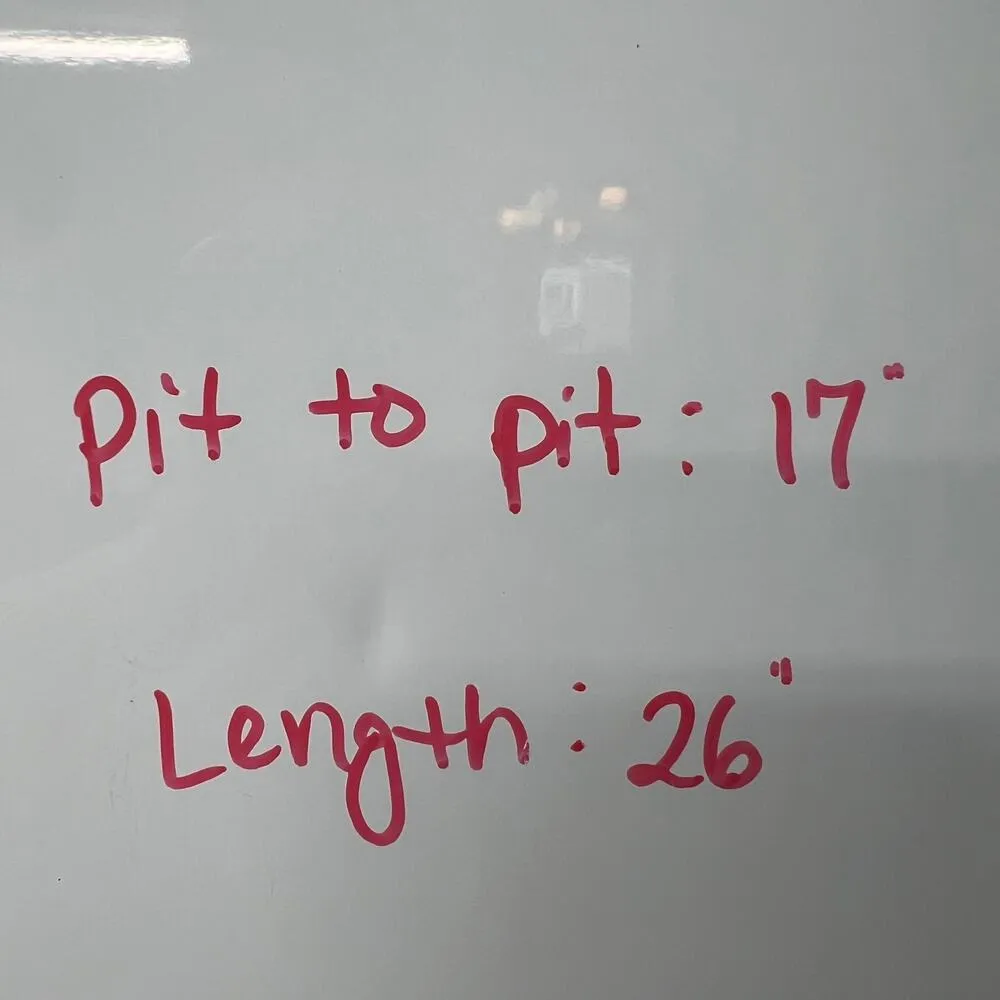 Pit to pit: 17"
Length: 26"